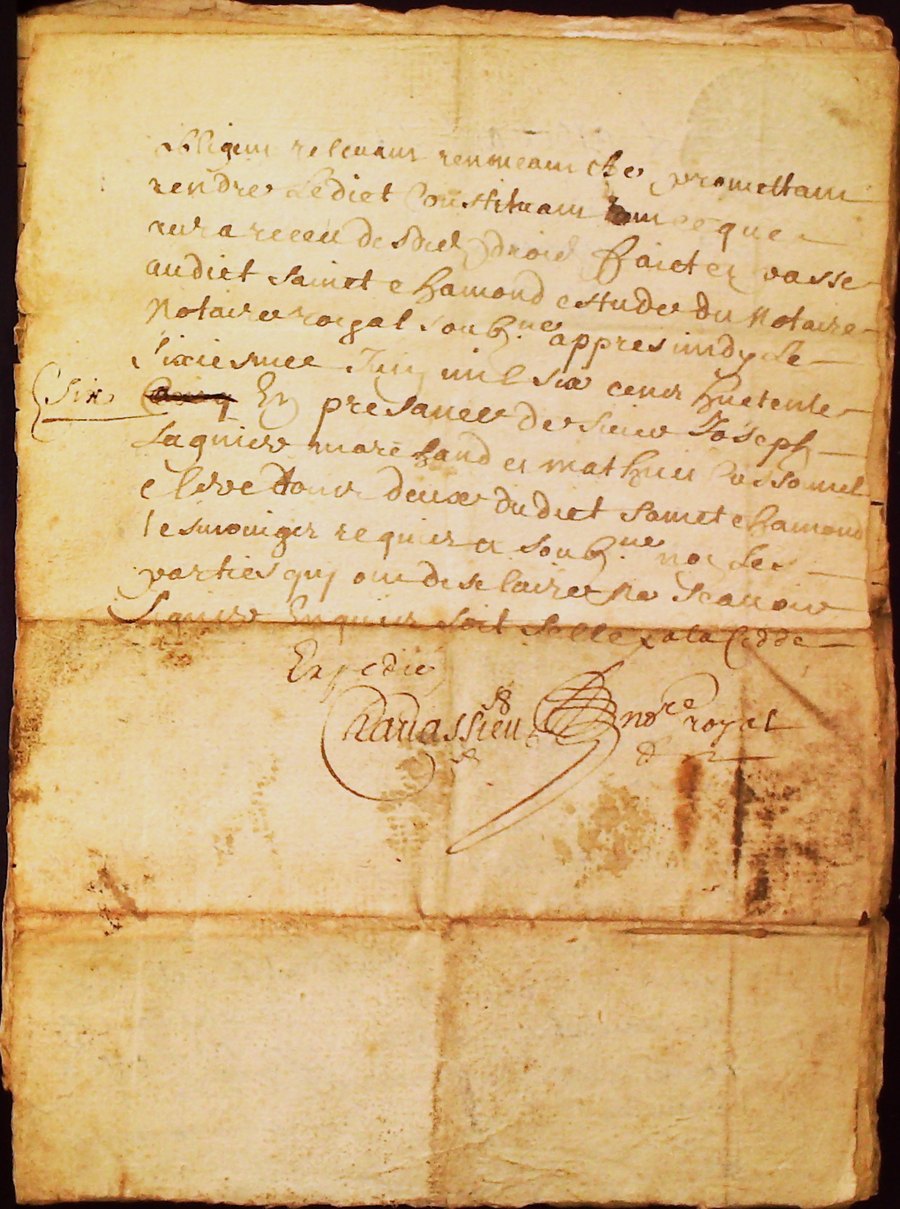 obligeans rellevans renonceans etc promettant
rendre ledict Constituant tout ce que
aura receu desdict droict faict et passe
audict sainct chamond estude du Notaire
Notaire royal soubz.ne appres midy le
sixiesme Juin mil six cens huictente
six En presance de sieur Joseph
Lagniere marchand et mathieu
clerc tous deux dudict sainct chamond
tesmoingtz requis et soubz.nes non les
parties quy ont desclaire ne scavoir
signer Enquis soit selle a la cedde
Expedié
Chavassieu nore royal